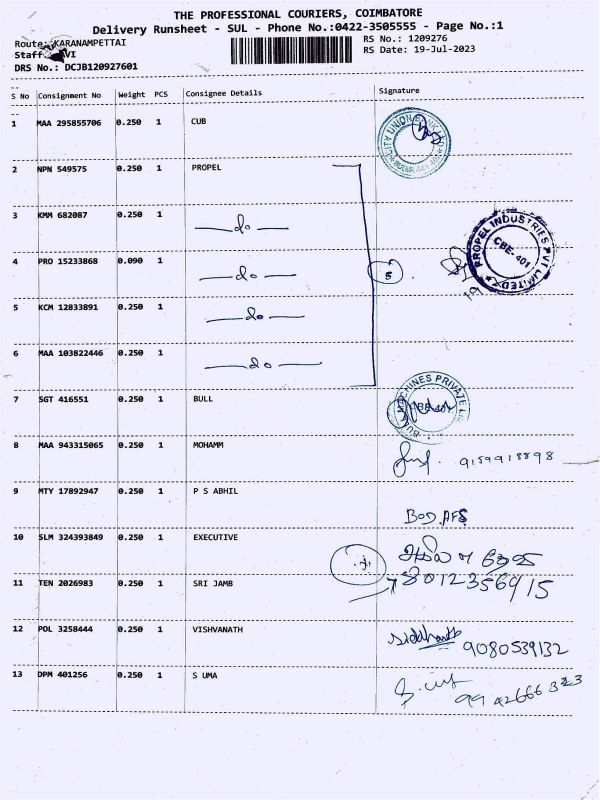 THE PROFESSIONAL COURIERS, COIMBATORE
Delivery Runsheet - SUL - Phone No.:0422-3505555 - Page No.:1
Route: KARANAMPETTAI
RS No.: 1209276
Staff
VI
RS Date: 19-Jul-2023
DRS No.: DCJB120927601
S No Consignment No Weight PCS Consignee Details Signature
1 MAA 295855706 0.250 1 CUB
CITY UNION BANK
2 NPN 549575 0.250 1 PROPEL
3 KMM 682087 0.250 1 do
PROPEL INDUSTRIES PVT LIMITED
CBE-401
4 PRO 15233868 0.090 1 do
5
5 KCM 12833891 0.250 1 do
6 MAA 103822446 0.250 1 do
7 SGT 416551 0.250 1 BULL
BULL MACHINES PRIVATE
8 MAA 943315065 0.250 1 MOHAMM
9159918898
9 MTY 17892947 0.250 1 P S ABHIL
BOD.AFS
10 SLM 324393849 0.250 1 EXECUTIVE
11 TEN 2026983 0.250 1 SRI JAMB
8012356915
12 POL 3258444 0.250 1 VISHVANATH
Siddharth 9080539132
13 DPM 401256 0.250 1 S UMA
9942666323